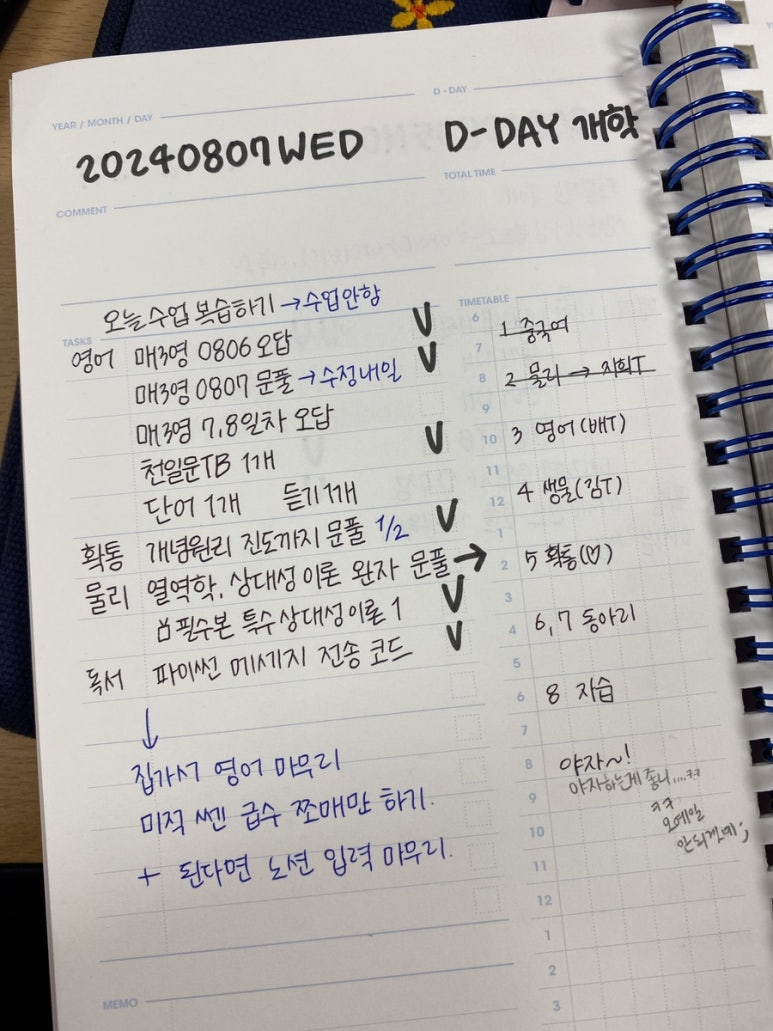 YEAR / MONTH / DAY
20240807 WED
D - DAY
D-DAY 개학
COMMENT
TOTAL TIME
오늘 수업 복습하기 → 수업안함
TASKS
영어 매3영 0806 오답
매3영 0807 문풀 → 수정내일
매3영 7,8일차 오답
천일문TB 1개
단어 1개 듣기 1개
확통 개념원리 진도까지 문풀 1/2
물리 열역학, 상대성 이론 완자 문풀 →
필수본 특수상대성이론 1
독서 파이썬 메세지 전송 코드
↓
집가서 영어 마무리
미직 쎈 급수 쪼매만 하기.
+ 된다면 노션 입력 마무리.
MEMO
TIMETABLE
6
1 중국어
7
8
2 물리 → 지회T
9
10
3 영어(배T)
11
12
4 생물(김T)
1
2
5 확통(♡)
3
4
6,7 동아리
5
6
8 자습
7
8
야자~!
야자하는게 좋니....ㅋㅋ
9
ㅋㅋ
10
안되겠네;
11
12
1
2
3